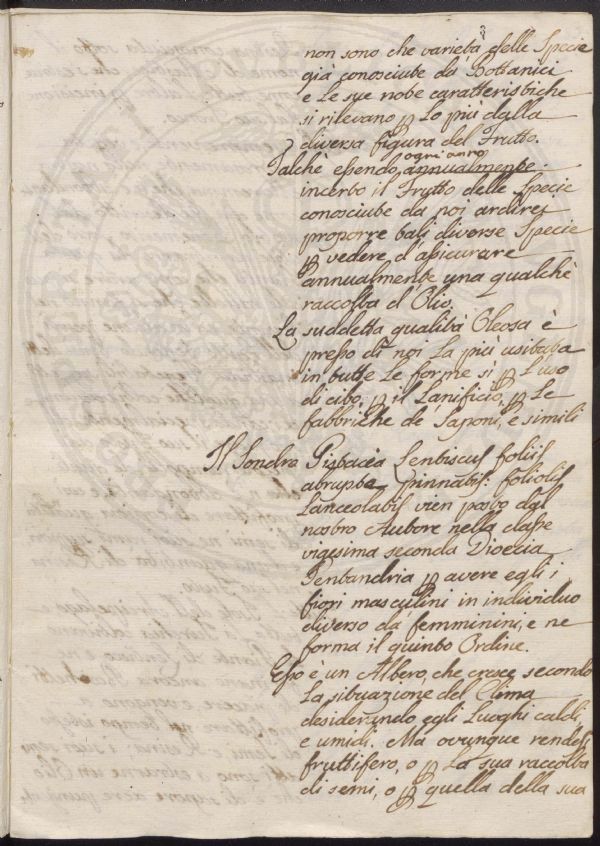 3
non sono che varietà delle Specie
già conosciute da Bottanici
e Le sue note caratteristiche
si rilevano ꝑ Lo più dalla
diversa figura del Frutto.
Talchè essendo ogni anno annualmente
incerto il Frutto delle Specie
conosciute da noi ardirei
proporre tali diverse Specie
ꝑ vedere d'assicurare
annualmente una qualchè
raccolta d'Olio.
La suddetta qualità Oleosa è
presso di noi La più usitata
in tutte Le forme sì ꝑ L'uso
di cibo, ꝑ il Lanificio, ꝑ Le
fabbriche de Saponi, e simili
Il Sondra Pistacea Lentiscus foliis
abrupte pinnatis: foliolis
Lanceolatis vien posto dal
nostro Autore nella classe
vigesima seconda Dioecia
Pentandria ꝑ avere egli i
fiori masculini in individuo
diverso da femminini, e ne
forma il quinto Ordine.
Esso è un Albero, che cresce secondo
La situazione del Clima
desiderando egli Luoghi caldi,
e umidi. Ma ovunque rendesi
fruttifero, o ꝑ La sua raccolta
di semi, o ꝑ quella della sua